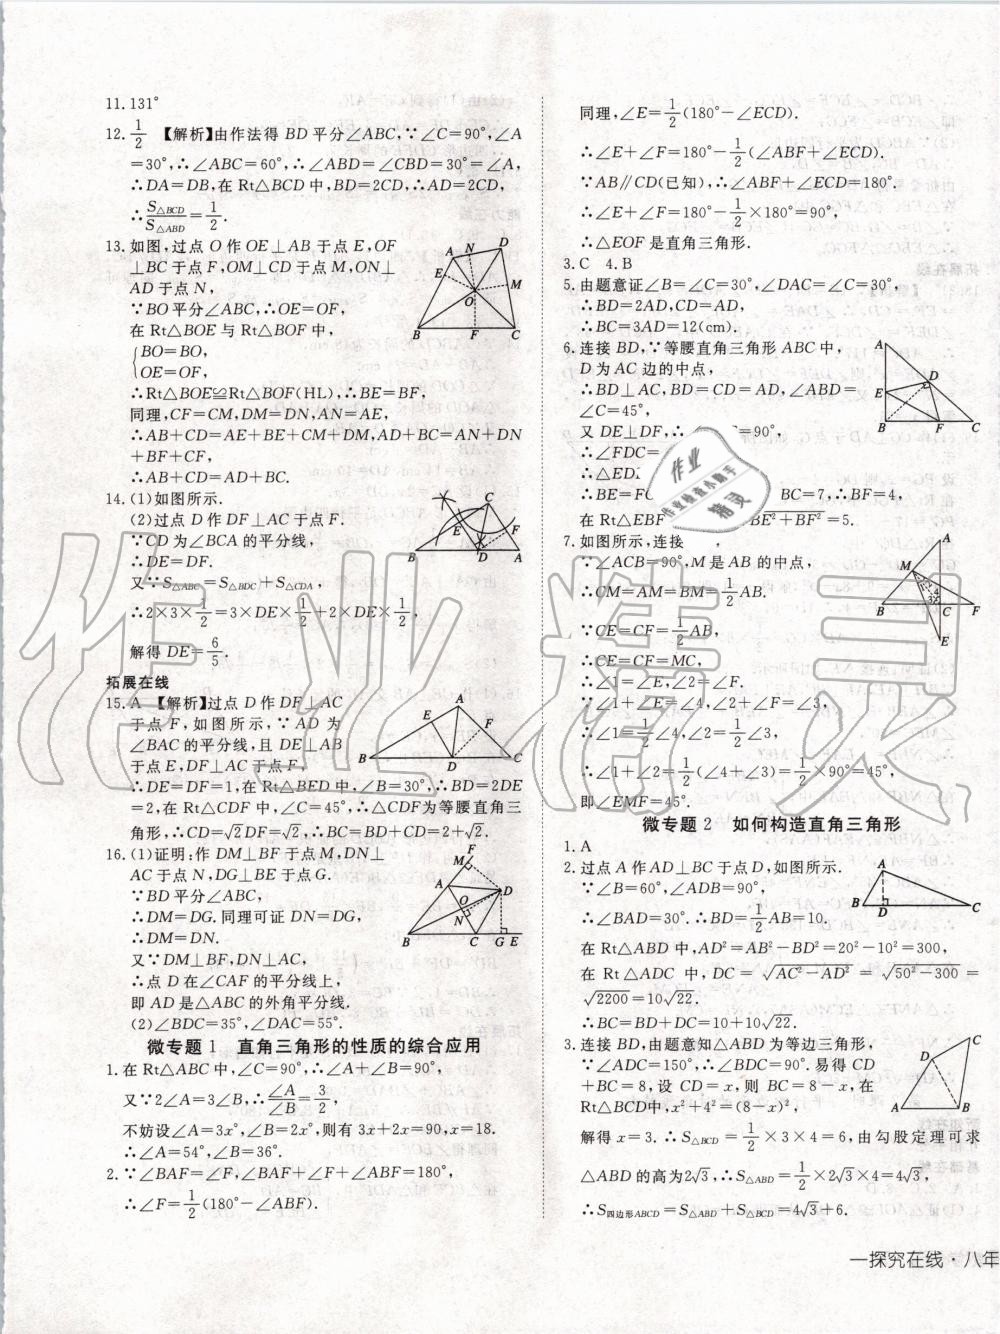 11.131°
12.1/2 【解析】由作法得 BD 平分∠ABC,∵∠C=90°,∠A
=30°,∴∠ABC=60°,∴∠ABD=∠CBD=30°=∠A,
∴DA=DB,在 Rt△BCD 中,BD=2CD,∴AD=2CD,
∴S△BCD/S△ABD=1/2.
13.如图,过点 O 作 OE⊥AB 于点 E,OF
⊥BC 于点 F,OM⊥CD 于点 M,ON⊥
AD 于点 N,
∵BO 平分∠ABC,∴OE=OF,
在 Rt△BOE 与 Rt△BOF 中,
{BO=BO,
OE=OF,
∴Rt△BOE≌Rt△BOF(HL),∴BE=BF,
同理,CF=CM,DM=DN,AN=AE,
∴AB+CD=AE+BE+CM+DM,AD+BC=AN+DN
+BF+CF,
∴AB+CD=AD+BC.
14.(1)如图所示.
(2)过点 D 作 DF⊥AC 于点 F.
∵CD 为∠BCA 的平分线,
∴DE=DF.
又∵S△ABC=S△BDC+S△CDA,
∴2×3×1/2=3×DE×1/2+2×DE×1/2,
解得 DE=6/5.
拓展在线
15.A 【解析】过点 D 作 DF⊥AC
于点 F,如图所示,∵AD 为
∠BAC 的平分线,且 DE⊥AB
于点 E,DF⊥AC 于点 F,
∴DE=DF=1,在 Rt△BED 中,∠B=30°,∴BD=2DE
=2,在 Rt△CDF 中,∠C=45°,∴△CDF 为等腰直角三
角形,∴CD=√2DF=√2,∴BC=BD+CD=2+√2.
16.(1)证明:作 DM⊥BF 于点 M,DN⊥
AC 于点 N,DG⊥BE 于点 G.
∵BD 平分∠ABC,
∴DM=DG.同理可证 DN=DG,
∴DM=DN.
又∵DM⊥BF,DN⊥AC,
∴点 D 在∠CAF 的平分线上,
即 AD 是△ABC 的外角平分线.
(2)∠BDC=35°,∠DAC=55°.
微专题 1 直角三角形的性质的综合应用
1.在 Rt△ABC 中,∠C=90°,∴∠A+∠B=90°,
又∵2∠A=3∠B,∴∠A/∠B=3/2,
不妨设∠A=3x°,∠B=2x°,则有 3x+2x=90,x=18.
∴∠A=54°,∠B=36°.
2.∵∠BAF=∠F,∠BAF+∠F+∠ABF=180°,
∴∠F=1/2(180°-∠ABF).
同理,∠E=1/2(180°-∠ECD).
∴∠E+∠F=180°-1/2(∠ABF+∠ECD).
∵AB∥CD(已知),∴∠ABF+∠ECD=180°.
∴∠E+∠F=180°-1/2×180°=90°,
∴△EOF 是直角三角形.
3.C 4.B
5.由题意证∠B=∠C=30°,∠DAC=∠C=30°,
∴BD=2AD,CD=AD,
∴BC=3AD=12(cm).
6.连接 BD,∵等腰直角三角形 ABC 中,
D 为 AC 边的中点,
∴BD⊥AC,BD=CD=AD,∠ABD=
∠C=45°,
又 DE⊥DF,∴∠ =90°,
∴∠FDC=
∴△ED
∴BE=FC BC=7,∴BF=4,
在 Rt△EBF BE²+BF²=5.
7.如图所示,连接
∵∠ACB=90°,M 是 AB 的中点,
∴CM=AM=BM=1/2AB.
∵CE=CF=1/2AB,
∴CE=CF=MC,
∴∠1=∠E,∠2=∠F.
∵∠1+∠E=∠4,∠2+∠F=∠3,
∴∠1=1/2∠4,∠2=1/2∠3,
∴∠1+∠2=1/2(∠4+∠3)=1/2×90°=45°,
即∠EMF=45°.
微专题 2 如何构造直角三角形
1.A
2.过点 A 作 AD⊥BC 于点 D,如图所示.
∵∠B=60°,∠ADB=90°,
∴∠BAD=30°.∴BD=1/2AB=10.
在 Rt△ABD 中,AD²=AB²-BD²=20²-10²=300,
在 Rt△ADC 中,DC=√(AC²-AD²)=√(50²-300)=
√2200=10√22.
∴BC=BD+DC=10+10√22.
3.连接 BD,由题意知△ABD 为等边三角形,
∵∠ADC=150°,∴∠BDC=90°.易得 CD
+BC=8,设 CD=x,则 BC=8-x,在
Rt△BCD中,x²+4²=(8-x)²,
解得 x=3.∴S△BCD=1/2×3×4=6,由勾股定理可求
△ABD 的高为2√3,∴S△ABD=1/2×2√3×4=4√3,
∴S四边形ABCD=S△ABD+S△BCD=4√3+6.
一探究在线·八年
作业精灵